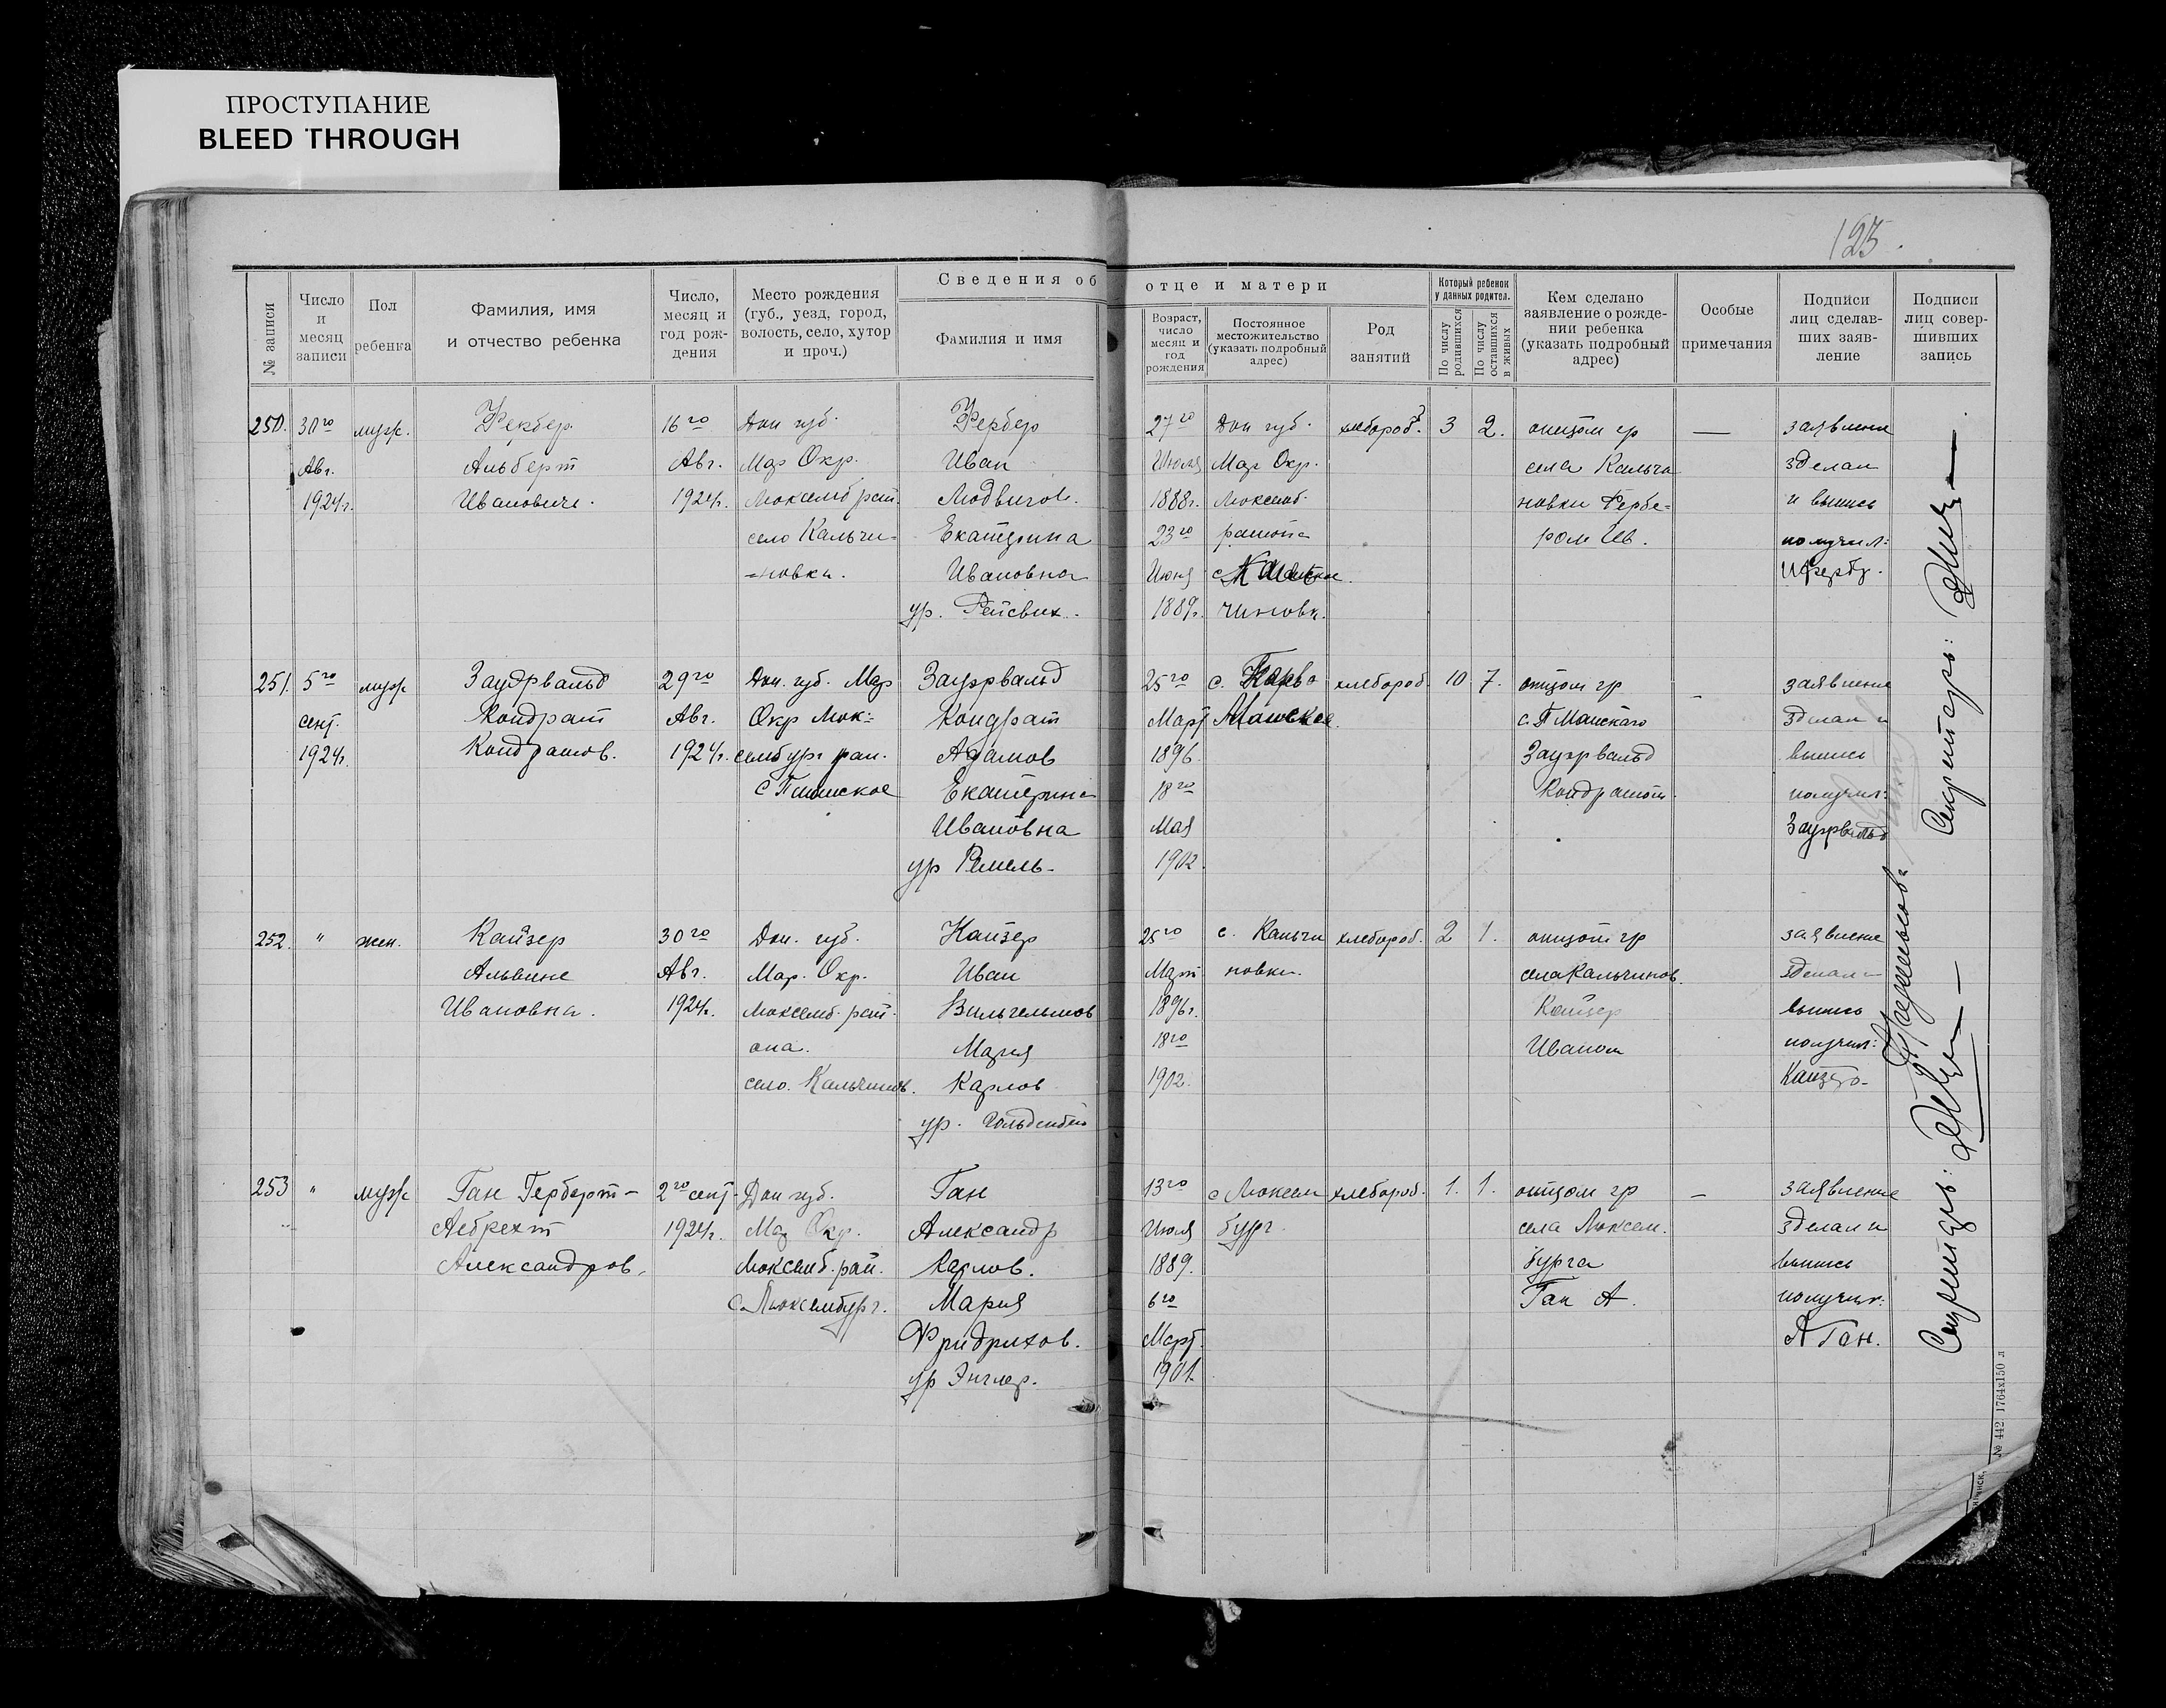 ПРОСТУПАНИЕ
BLEED THROUGH
123.
Сведения об отце и матери
№ записи
Число и месяц записи
Пол ребенка
Фамилия, имя и отчество ребенка
Число, месяц и год рождения
Место рождения (губ., уезд, город, волость, село, хутор и проч.)
Фамилия и имя
Возраст, число месяц и год рождения
Постоянное местожительство (указать подробный адрес)
Род занятий
Который ребенок у данных родител.
По числу родившихся
По числу оставшихся в живых
Кем сделано заявление о рождении ребенка (указать подробный адрес)
Особые примечания
Подписи лиц сделавших заявление
Подписи лиц совершивших запись
250. 30го муж. Фербер 16го Дон губ. Фербер 27го Дон губ. хлебороб. 3 2. отцом гр — заявление
Авг. Альберт Авг. Мар Окр. Иван Июля Мар Окр. села Кальчи зделал
1924г. Иванович. 1924г. Люксемб рай. Людвигов. 1888г. Люксемб. новки Фербе= и выпись
село Кальчи- Екатерина 23го района ром Ив. получил:
=новка. Ивановна Июня
ур. 1889г. чиновк.
251. 5го муж Зауэрвальд 29го Дон. губ. Мар Зауэрвальд 25го с. хлебороб. 10 7. отцом гр — заявление
сент. Кондрат Авг. Окр Люк= Кондрат Март Маиское зделал и
1924г. Кондратов. 1924г. сембург рай. Адамов 1896. Зауэрвальд выпись
Екатерина 18го Кондратом. получил:
Ивановна Мая Зауэрвальд
ур 1902.
252. " жен. Кайзер 30го Дон. губ. Кайзер 25го с. Кальчи хлебороб. 2 1. отцом гр заявление
Альвине Авг. Мар. Окр. Иван Март новки. села Кальчинов. зделал и
Ивановна. 1924г. Люксемб. рай- Вильгельмов 1896г. Кайзер выпись
она. Мария 18го Иваном получил:
село. Кальчинов. Карлов 1902.
ур.
253 " муж Ган Герберт- 2го сент. Дон губ. Ган 13го с Люксем хлебороб. 1. 1. отцом гр — заявление
1924г. Мар Окр. Александр Июля бург. села Люксем. зделал и
Александров. Люксемб. рай. Карлов. 1889. бурга выпись
с. Люксембург. Мария 6го Ган А. получил:
Фридрихов. Март. А Ган.
ур Энглер. 1901.
Секретарь:
Секретарь:
№ 442 1764х150 л